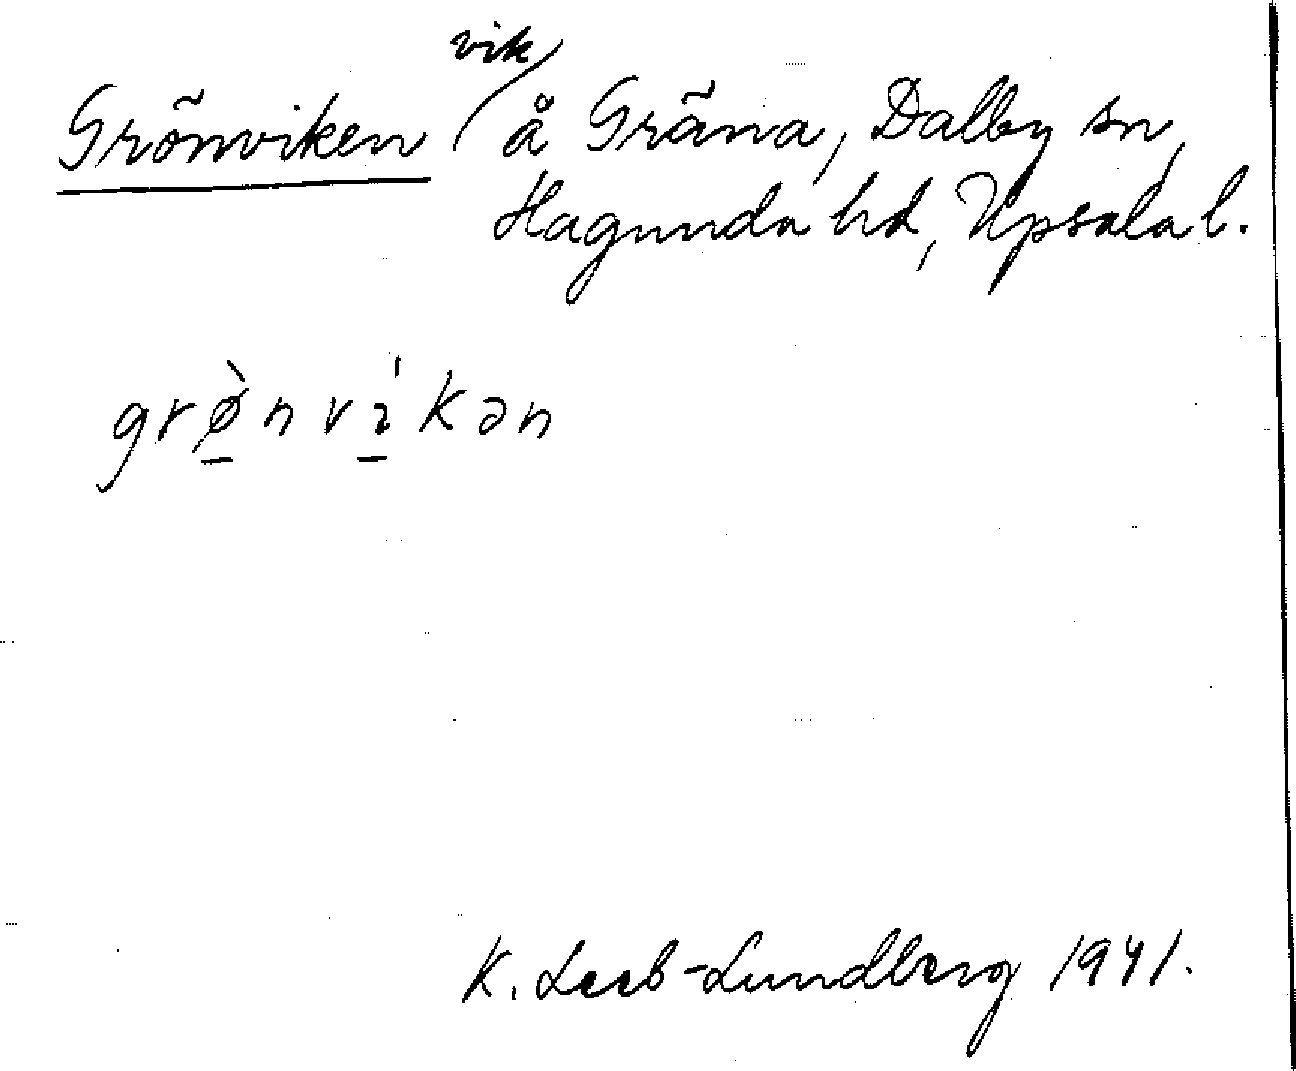 vik
Grönviken å Gräna, Dalby sn,
Hagunda hd, Upsala l.
grø̠̀nvı̠́kən
K. Leeb-Lundberg 1941.